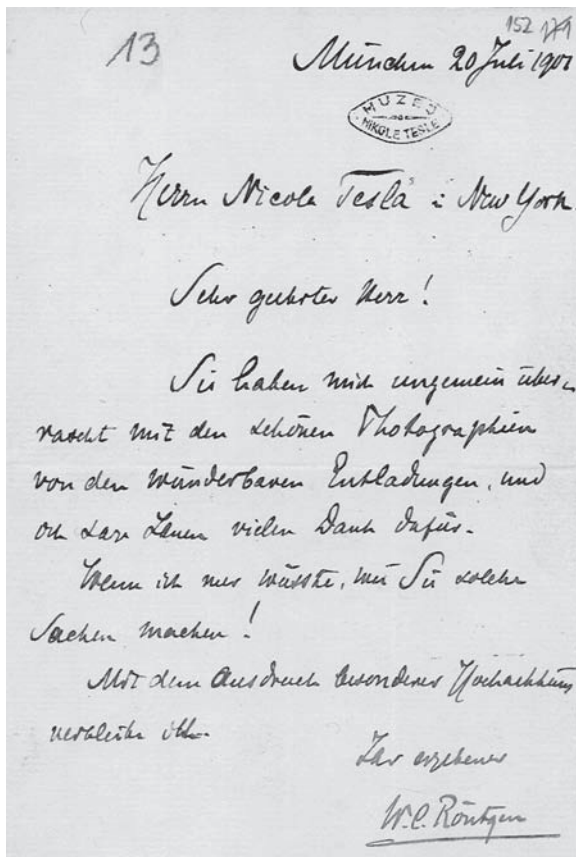 152 179
13
München 20 Juli 1901
MUZEJ
NIKOLE TESLE
Herrn Nicola Tesla i New York.
Sehr geehrter Herr!
Sie haben mich ungemein über-
rascht mit den schönen Photographien
von den wunderbaren Entladungen, und
ich sage Ihnen vielen Dank dafür.
Wenn ich nur wüsste, wie Sie solche
Sachen machen!
Mit dem Ausdruck besonderer Hochachtung
verbleibe ich
Ihr ergebener
W. C. Röntgen